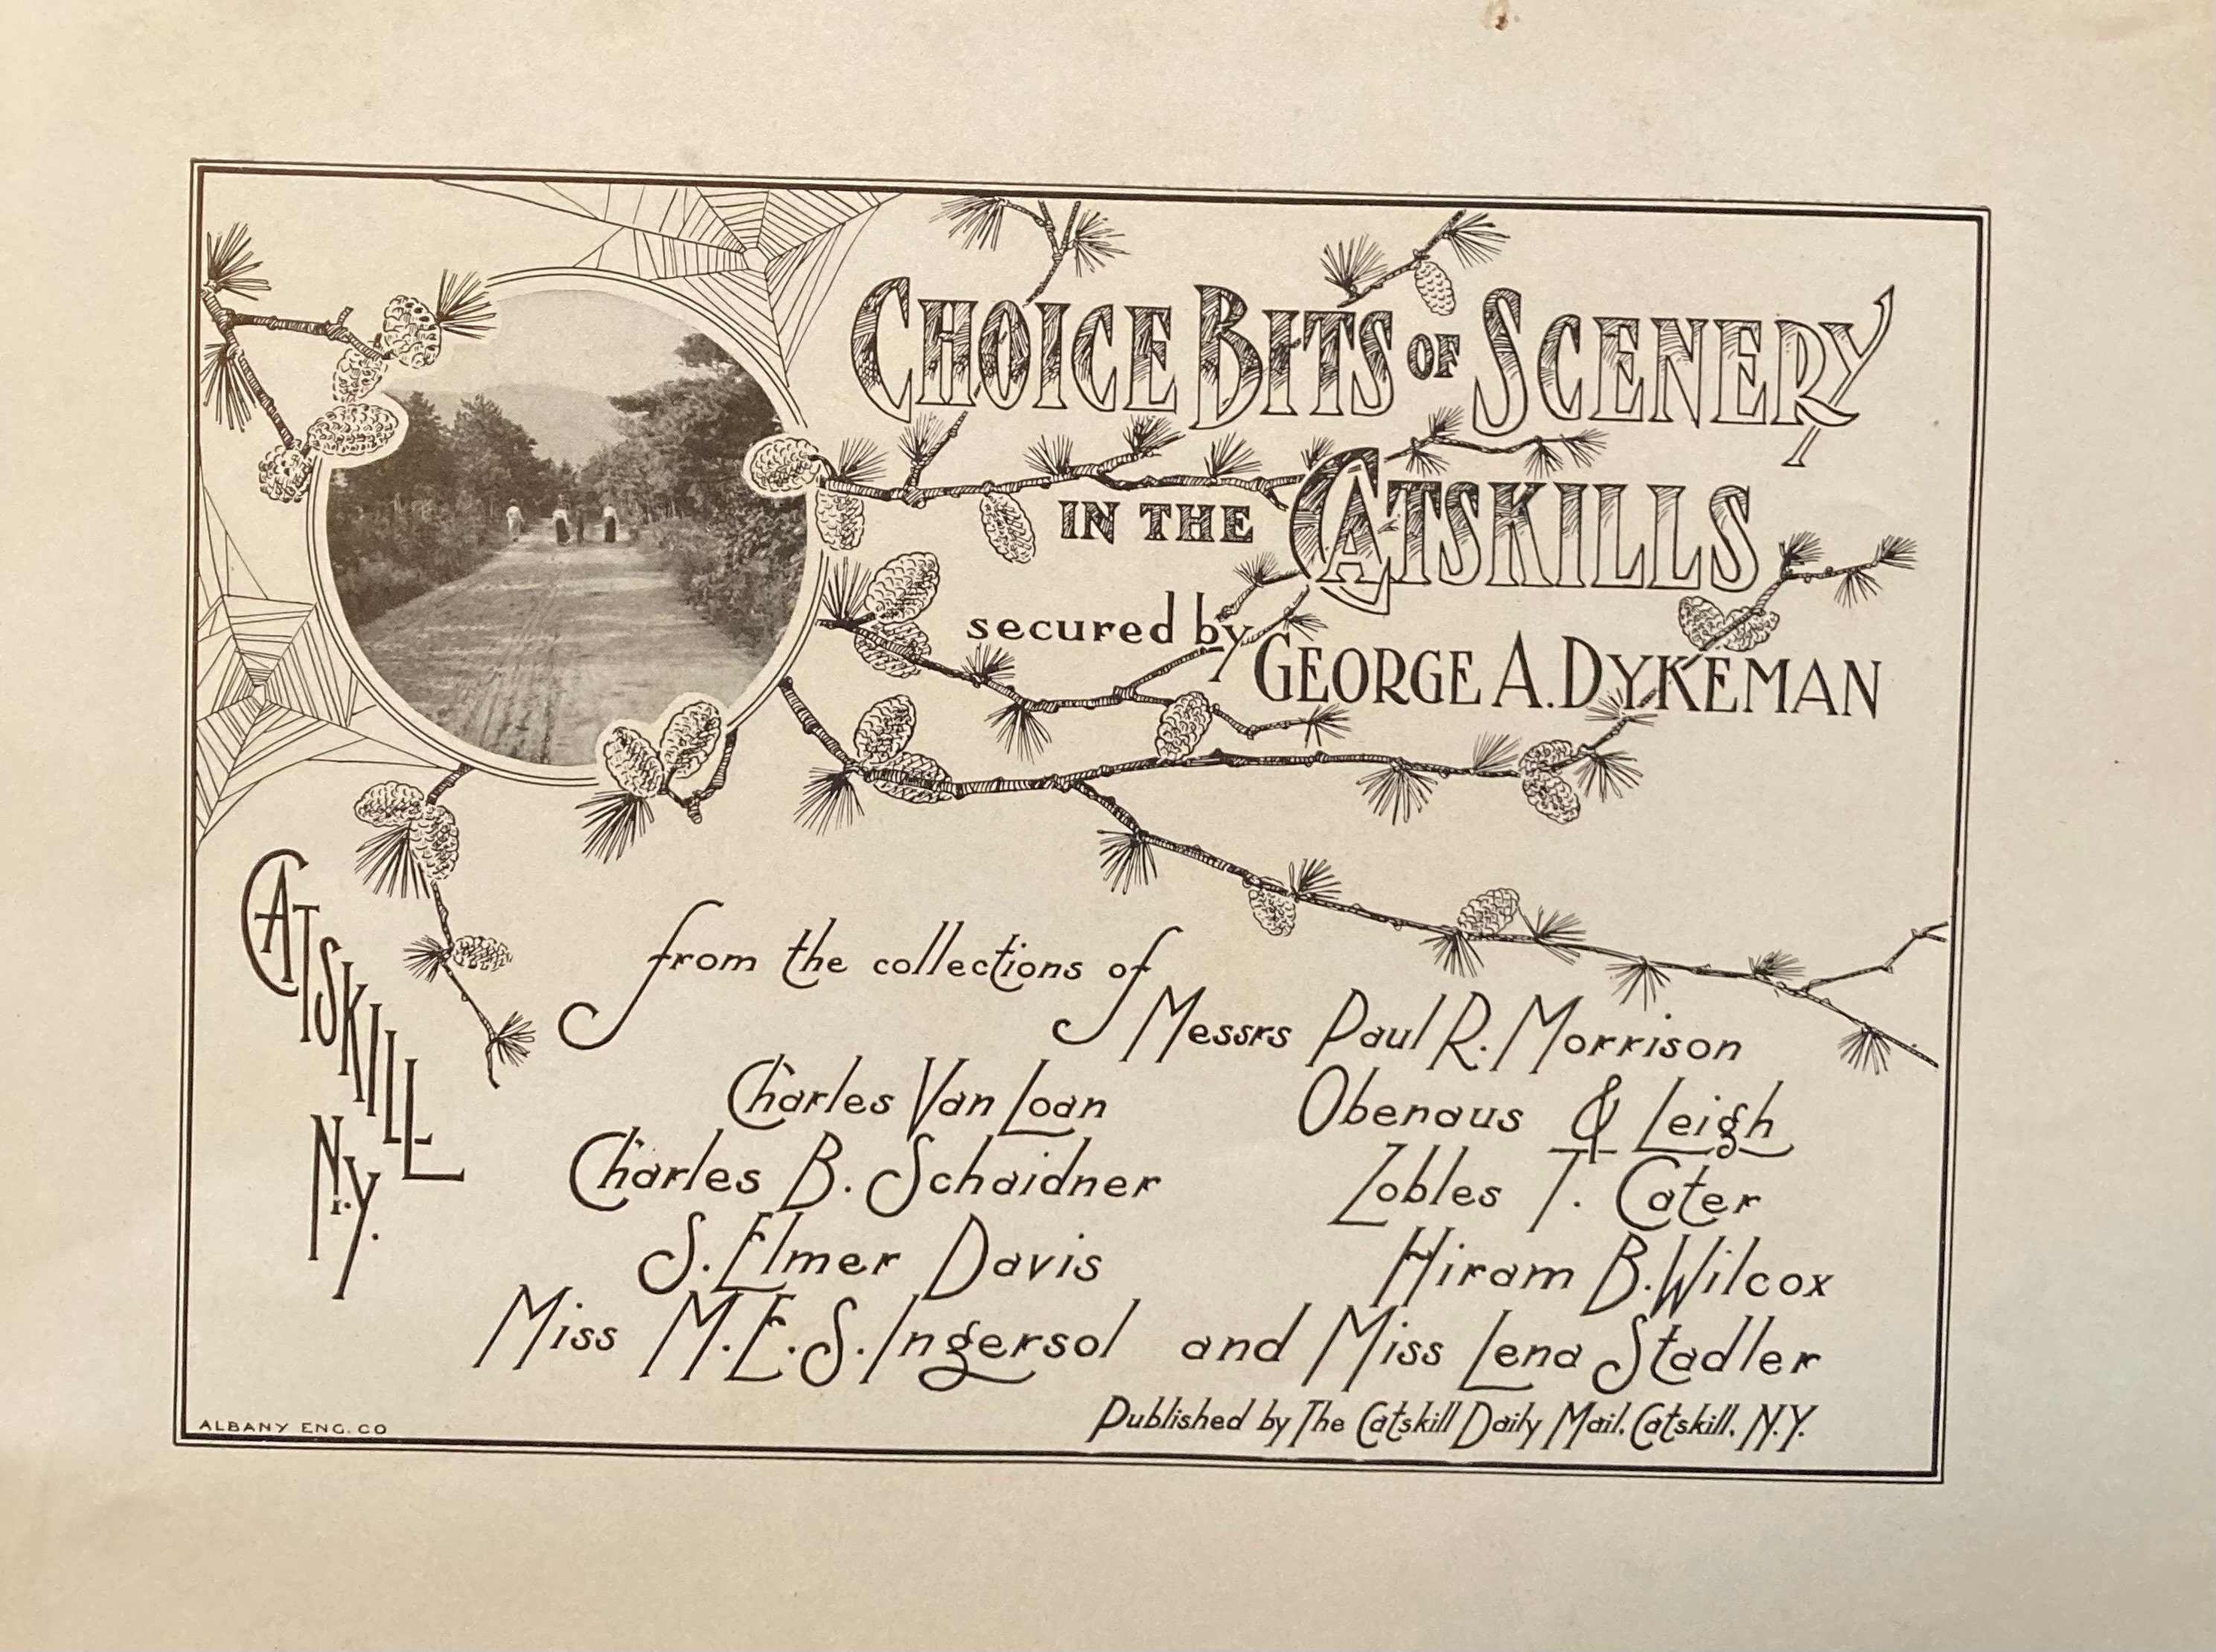 CHOICE BITS OF SCENERY
IN THE CATSKILLS
secured by GEORGE A. DYKEMAN
CATSKILL
N.Y.
from the collections of
Messrs Paul R. Morrison
Charles Van Loan
Obenaus & Leigh
Charles B. Schaidner
Zobles T. Cater
S. Elmer Davis
Hiram B. Wilcox
Miss M.E.S. Ingersol and Miss Lena Stadler
Published by The Catskill Daily Mail, Catskill, N.Y.
ALBANY ENG. CO